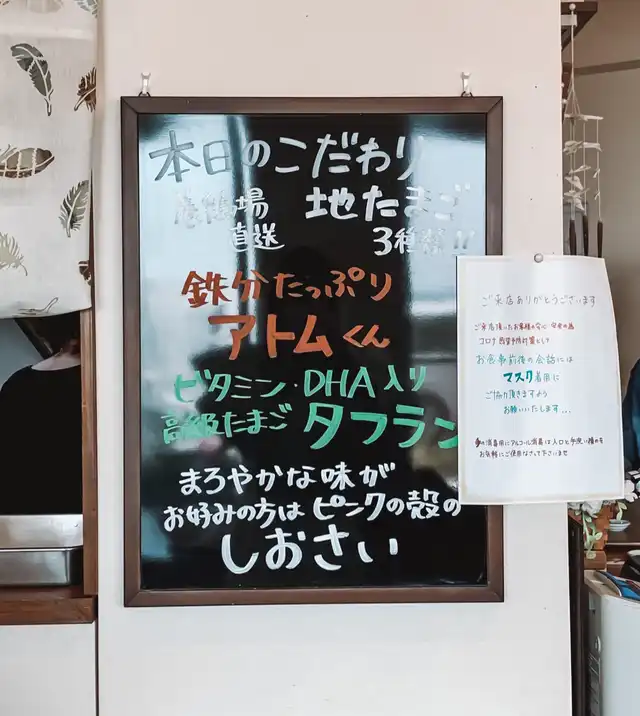 本日のこだわり
養鶏場 地たまご
直送 3種類!!
鉄分たっぷり
アトムくん
ビタミン・DHA入り
高級たまご タフラン
まろやかな味が
お好みの方は ピンクの殻の
しおさい
ご来店ありがとうございます
ご来店頂いたお客様の安心・安全の為
コロナ感染予防対策として
お食事前後の会話には
マスク着用に
ご協力頂きますよう
お願いいたします...
手の消毒用にアルコール消毒は入口と手洗い場の
お気軽にご使用なさって下さいませ